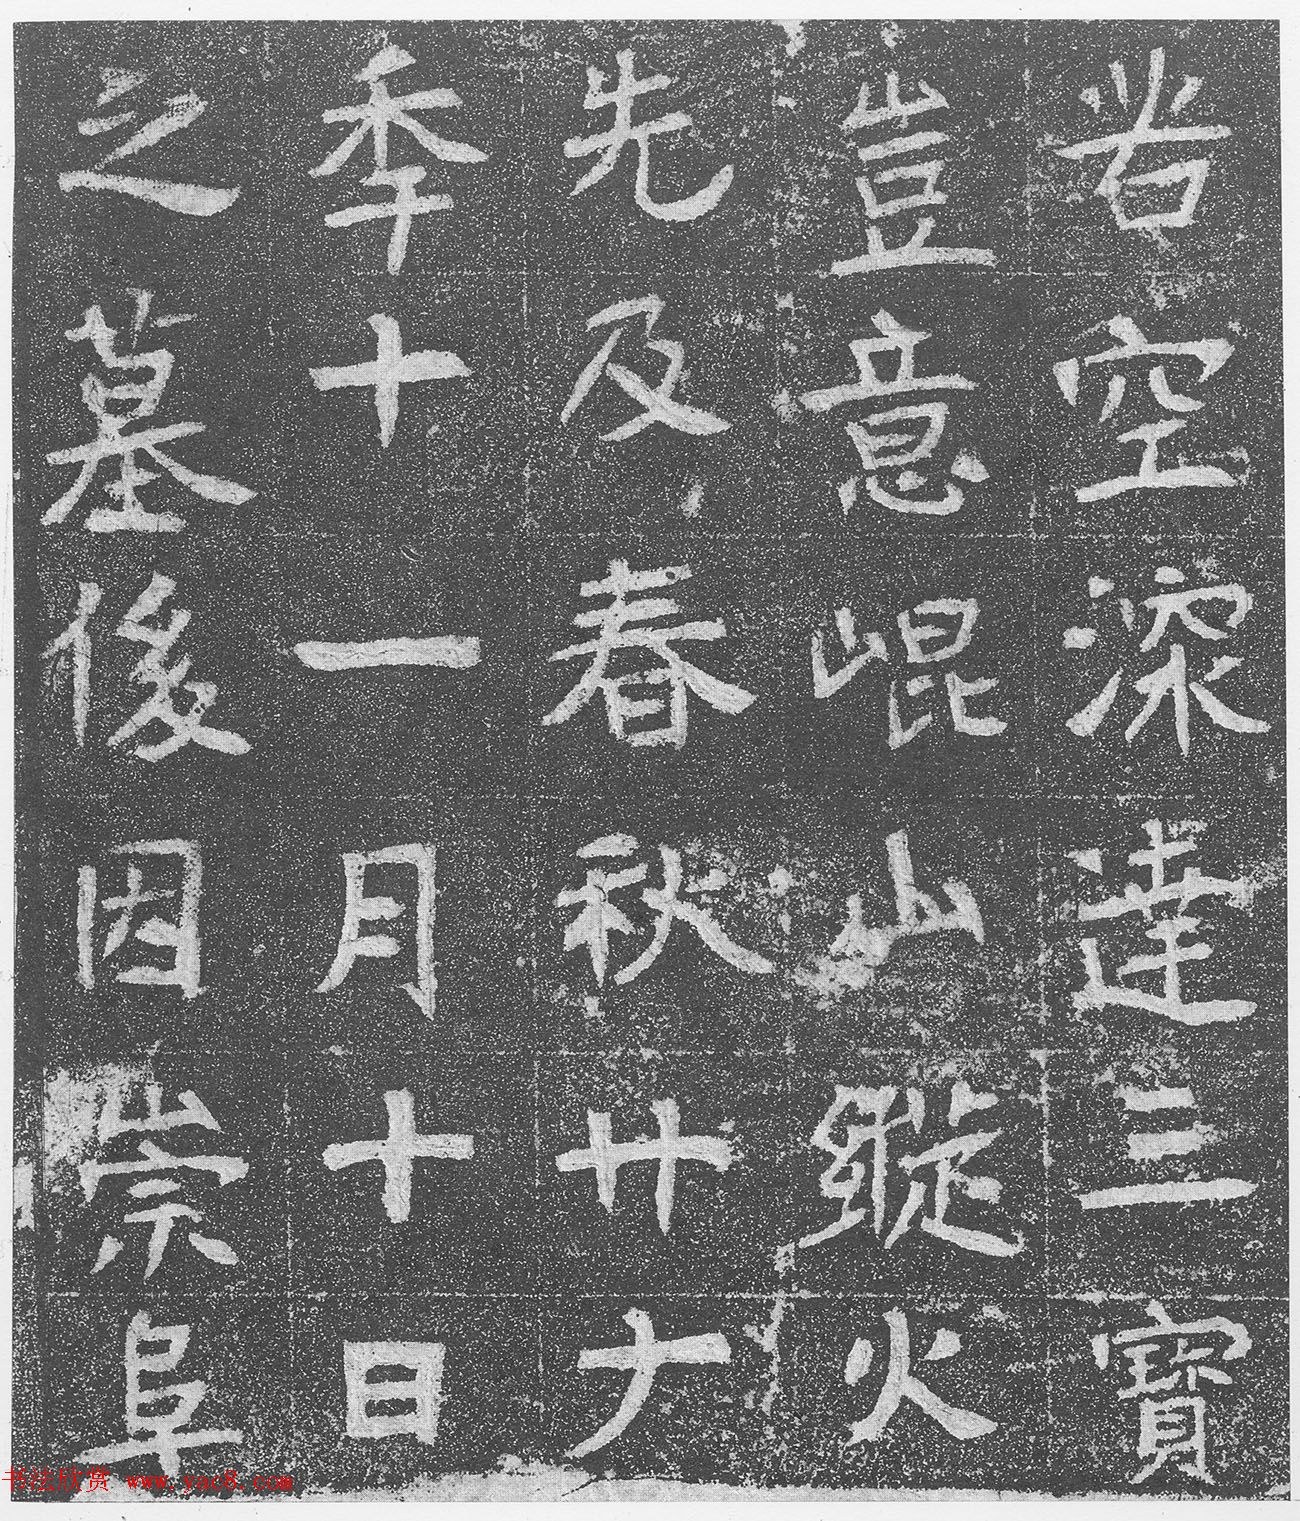 若空深達三寶
豈意崐山縱火
先及春秋廿
秊十一月十日
之墓後因崇阜
书法欣赏 www.yac8.com